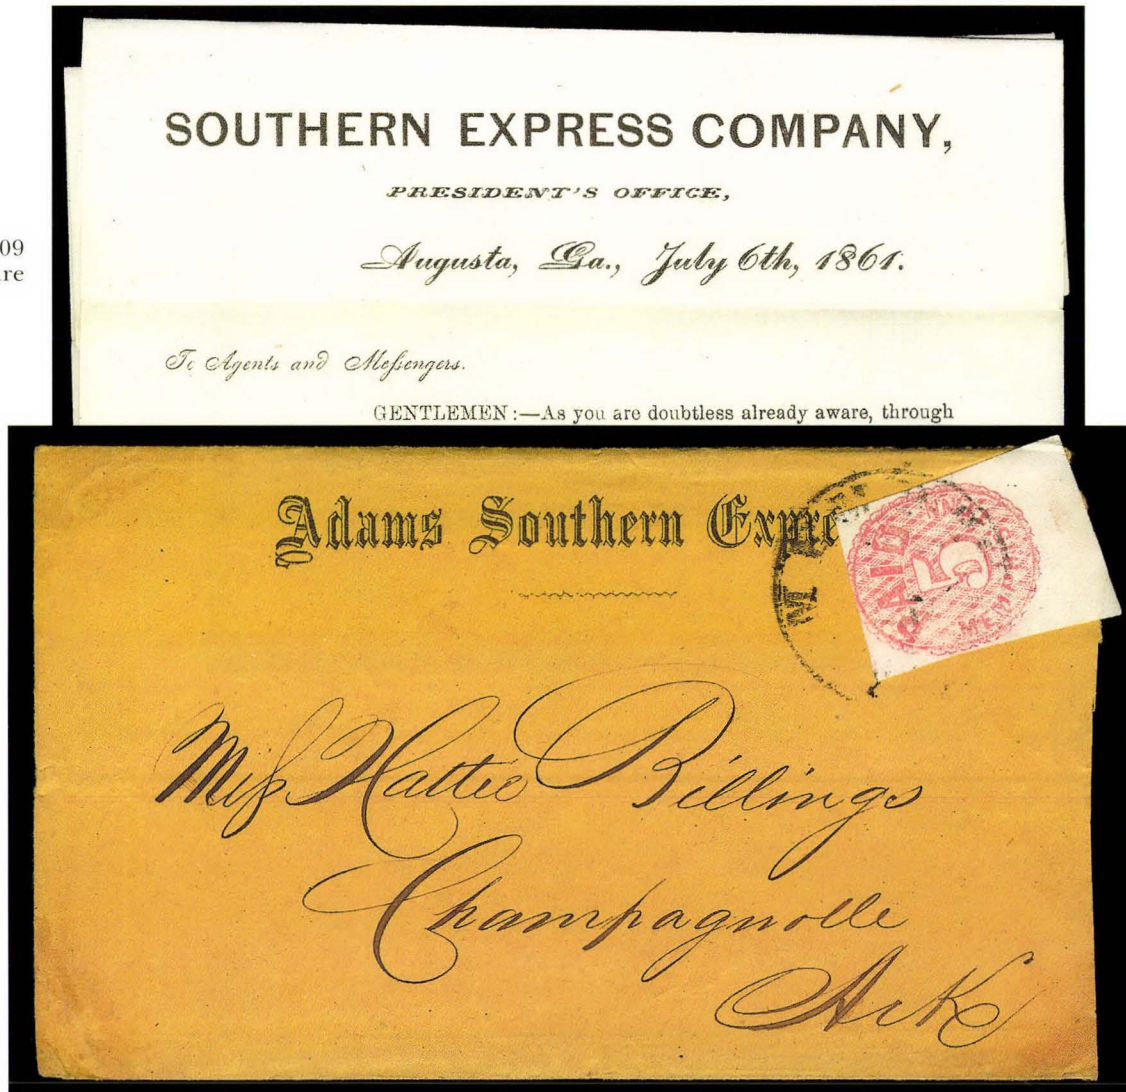 SOUTHERN EXPRESS COMPANY,
PRESIDENT'S OFFICE,
09
re
Augusta, Ga., July 6th, 1861.
To Agents and Meſsengers.
GENTLEMEN:—As you are doubtless already aware, through
Adams Southern Expre
PAID
5
MEM
Miſs Hattie Billings
Champagnolle
Ark